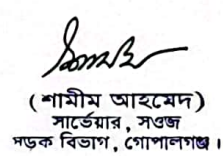 (শামীম আহমেদ)
সার্ভেয়ার, সওজ
সড়ক বিভাগ, গোপালগঞ্জ।